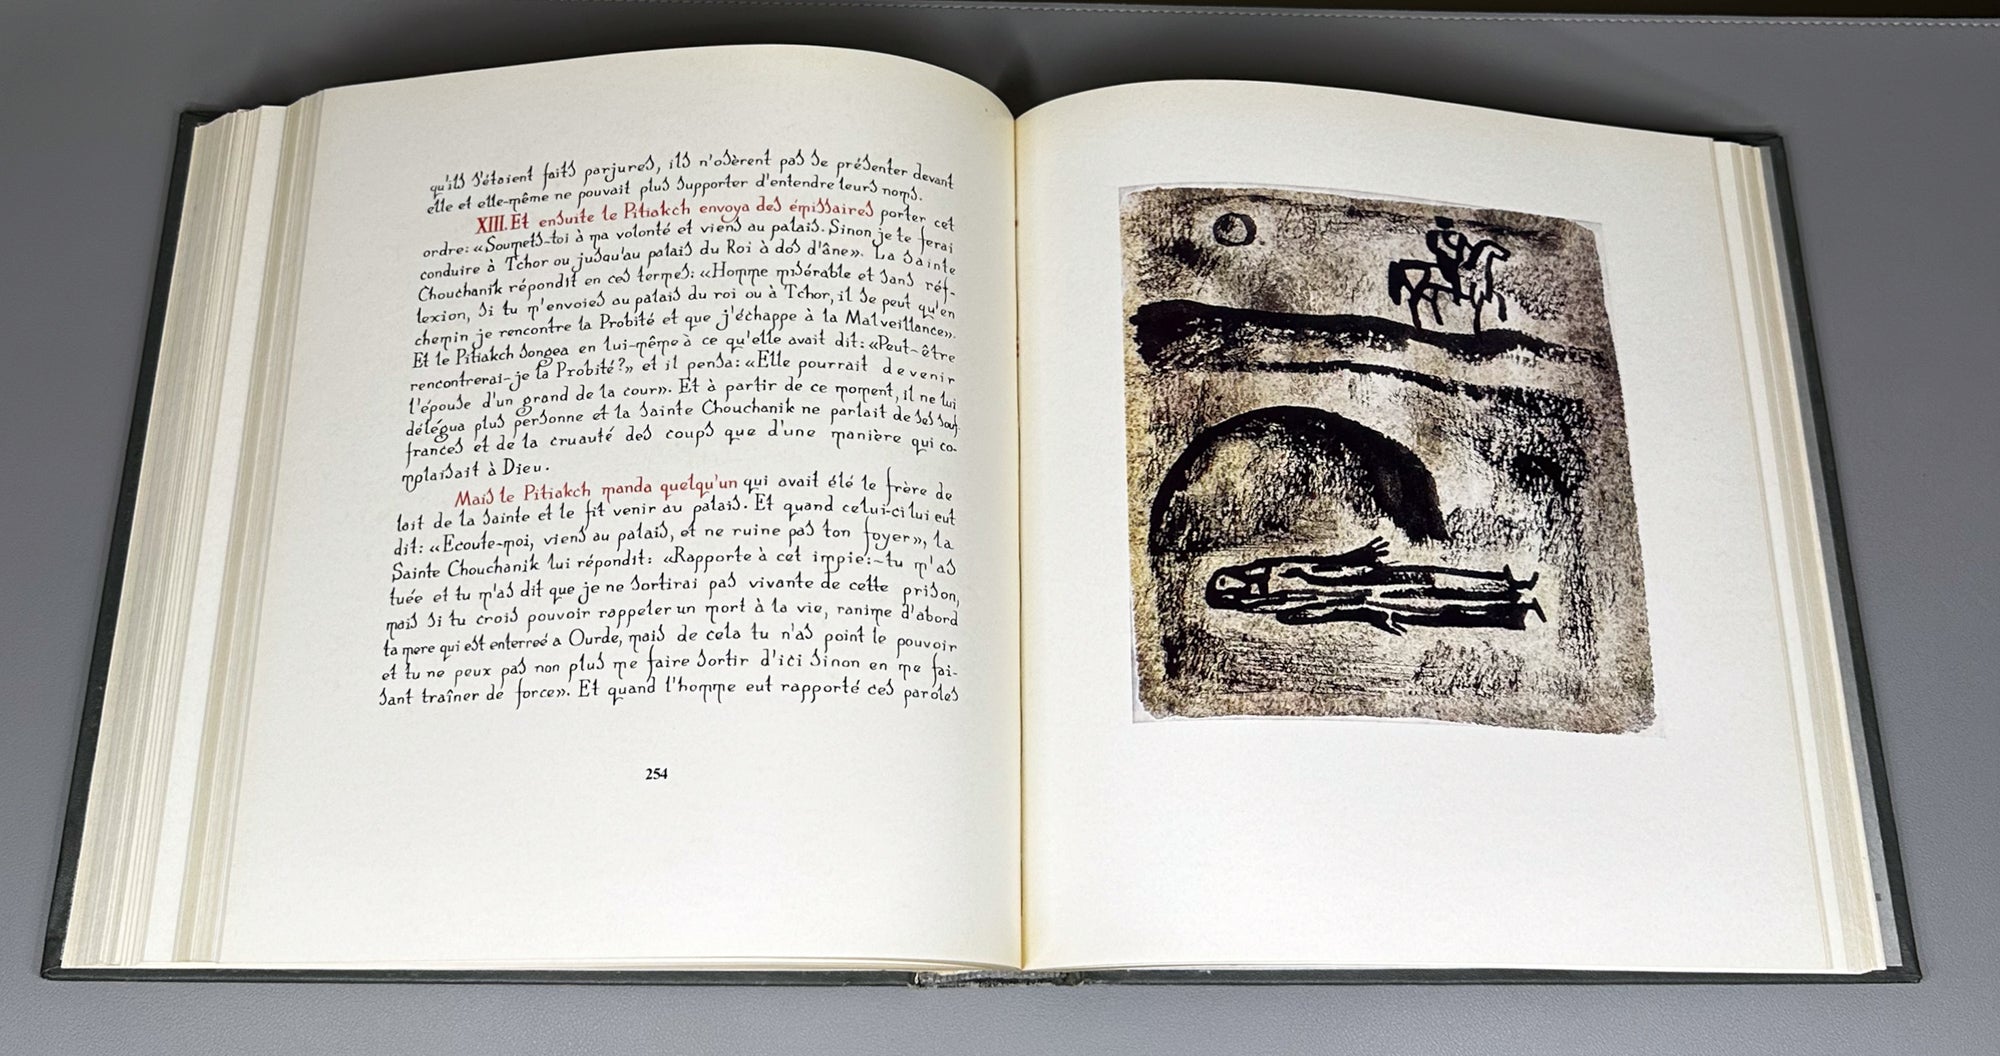 qu'ils s'étaient faits parjures, ils n'osèrent pas se présenter devant
elle et elle-même ne pouvait plus supporter d'entendre leurs noms.
XIII. Et ensuite le Pitiakch envoya des émissaires porter cet
ordre: «Soumets-toi à ma volonté et viens au palais. Sinon je te ferai
conduire à Tchor ou jusqu'au palais du Roi à dos d'âne». La Sainte
Chouchanik répondit en ces termes: «Homme misérable et sans réf-
lexion, si tu m'envoies au palais du roi ou à Tchor, il se peut qu'en
chemin je rencontre la Probité et que j'échappe à la Malveillance».
Et le Pitiakch songea en lui-même à ce qu'elle avait dit: «Peut-être
rencontrerai-je la Probité?» et il pensa: «Elle pourrait devenir
l'épouse d'un grand de la cour». Et à partir de ce moment, il ne lui
délégua plus personne et la Sainte Chouchanik ne parlait de ses souf-
frances et de la cruauté des coups que d'une manière qui co-
mplaisait à Dieu.
Mais le Pitiakch manda quelqu'un qui avait élé le frère de
lait de la Sainte et le fit venir au palais. Et quand celui-ci lui eut
dit: «Ecoute-moi, viens au palais, et ne ruine pas ton foyer», la
Sainte Chouchanik lui répondit: «Rapporte à cet impie:-tu m'as
tuée et tu m'as dit que je ne sortirai pas vivante de cette prison,
mais si tu crois pouvoir rappeler un mort à la vie, ranime d'abord
ta mere qui est enterreé a Ourde, mais de cela tu n'as point le pouvoir
et tu ne peux pas non plus me faire sortir d'ici sinon en me fai-
sant traîner de force». Et quand l'homme eut rapporté ces paroles
254